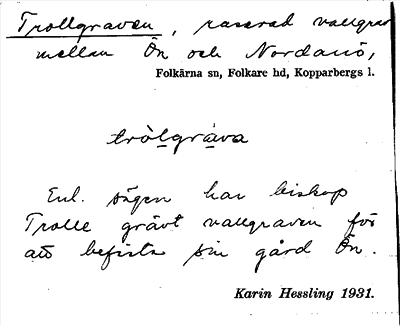 Trollgraven, raserad vallgrav
mellan Ön och Nordanö,
Folkärna sn, Folkare hd, Kopparbergs l.
tròlgràva
Enl. sägen har biskop
Trolle grävt vallgraven för
att befästa sin gård Ön.
Karin Hessling 1931.